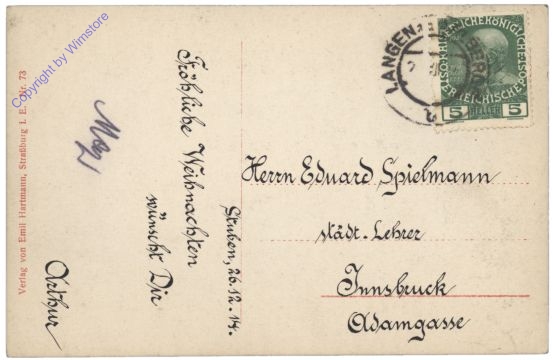 Copyright by Wimstore
Verlag von Emil Hartmann, Straßburg i. E. Nr. 73
Fröhliche Weihnachten
wünscht Dir
Arthur
Stuben, 26.12.14.
LANGEN
5 HELLER 5
Herrn Eduard Spielmann
städt. Lehrer
Innsbruck
Adamgasse